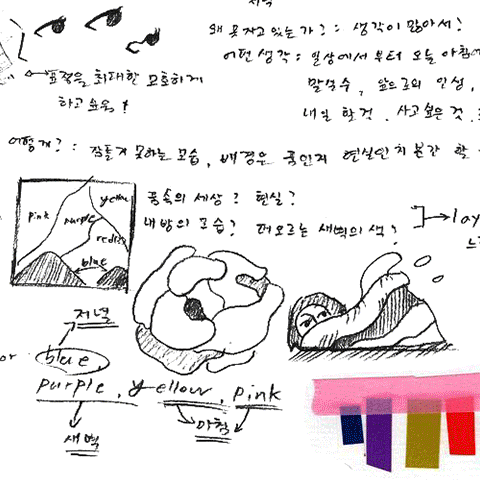 저녁
왜 못자고 있는가? : 생각이 많아서!
어떤 생각 : 일상에서 부터 오늘 아침에
표정을 최대한 모호하게
하고싶음!
말실수, 앞으로의 인생,
내일 할 것, 사고싶은 것,
어떻게? : 잠들지 못하는 모습, 배경은 꿈인지 현실인지 분간 할
꿈속의 세상? 현실?
내 방의 모습? 떠오르는 새벽의 색?
lay
pink
purple
yellow
red
blue
저녁
or blue,
purple, yellow, pink
새벽
아침